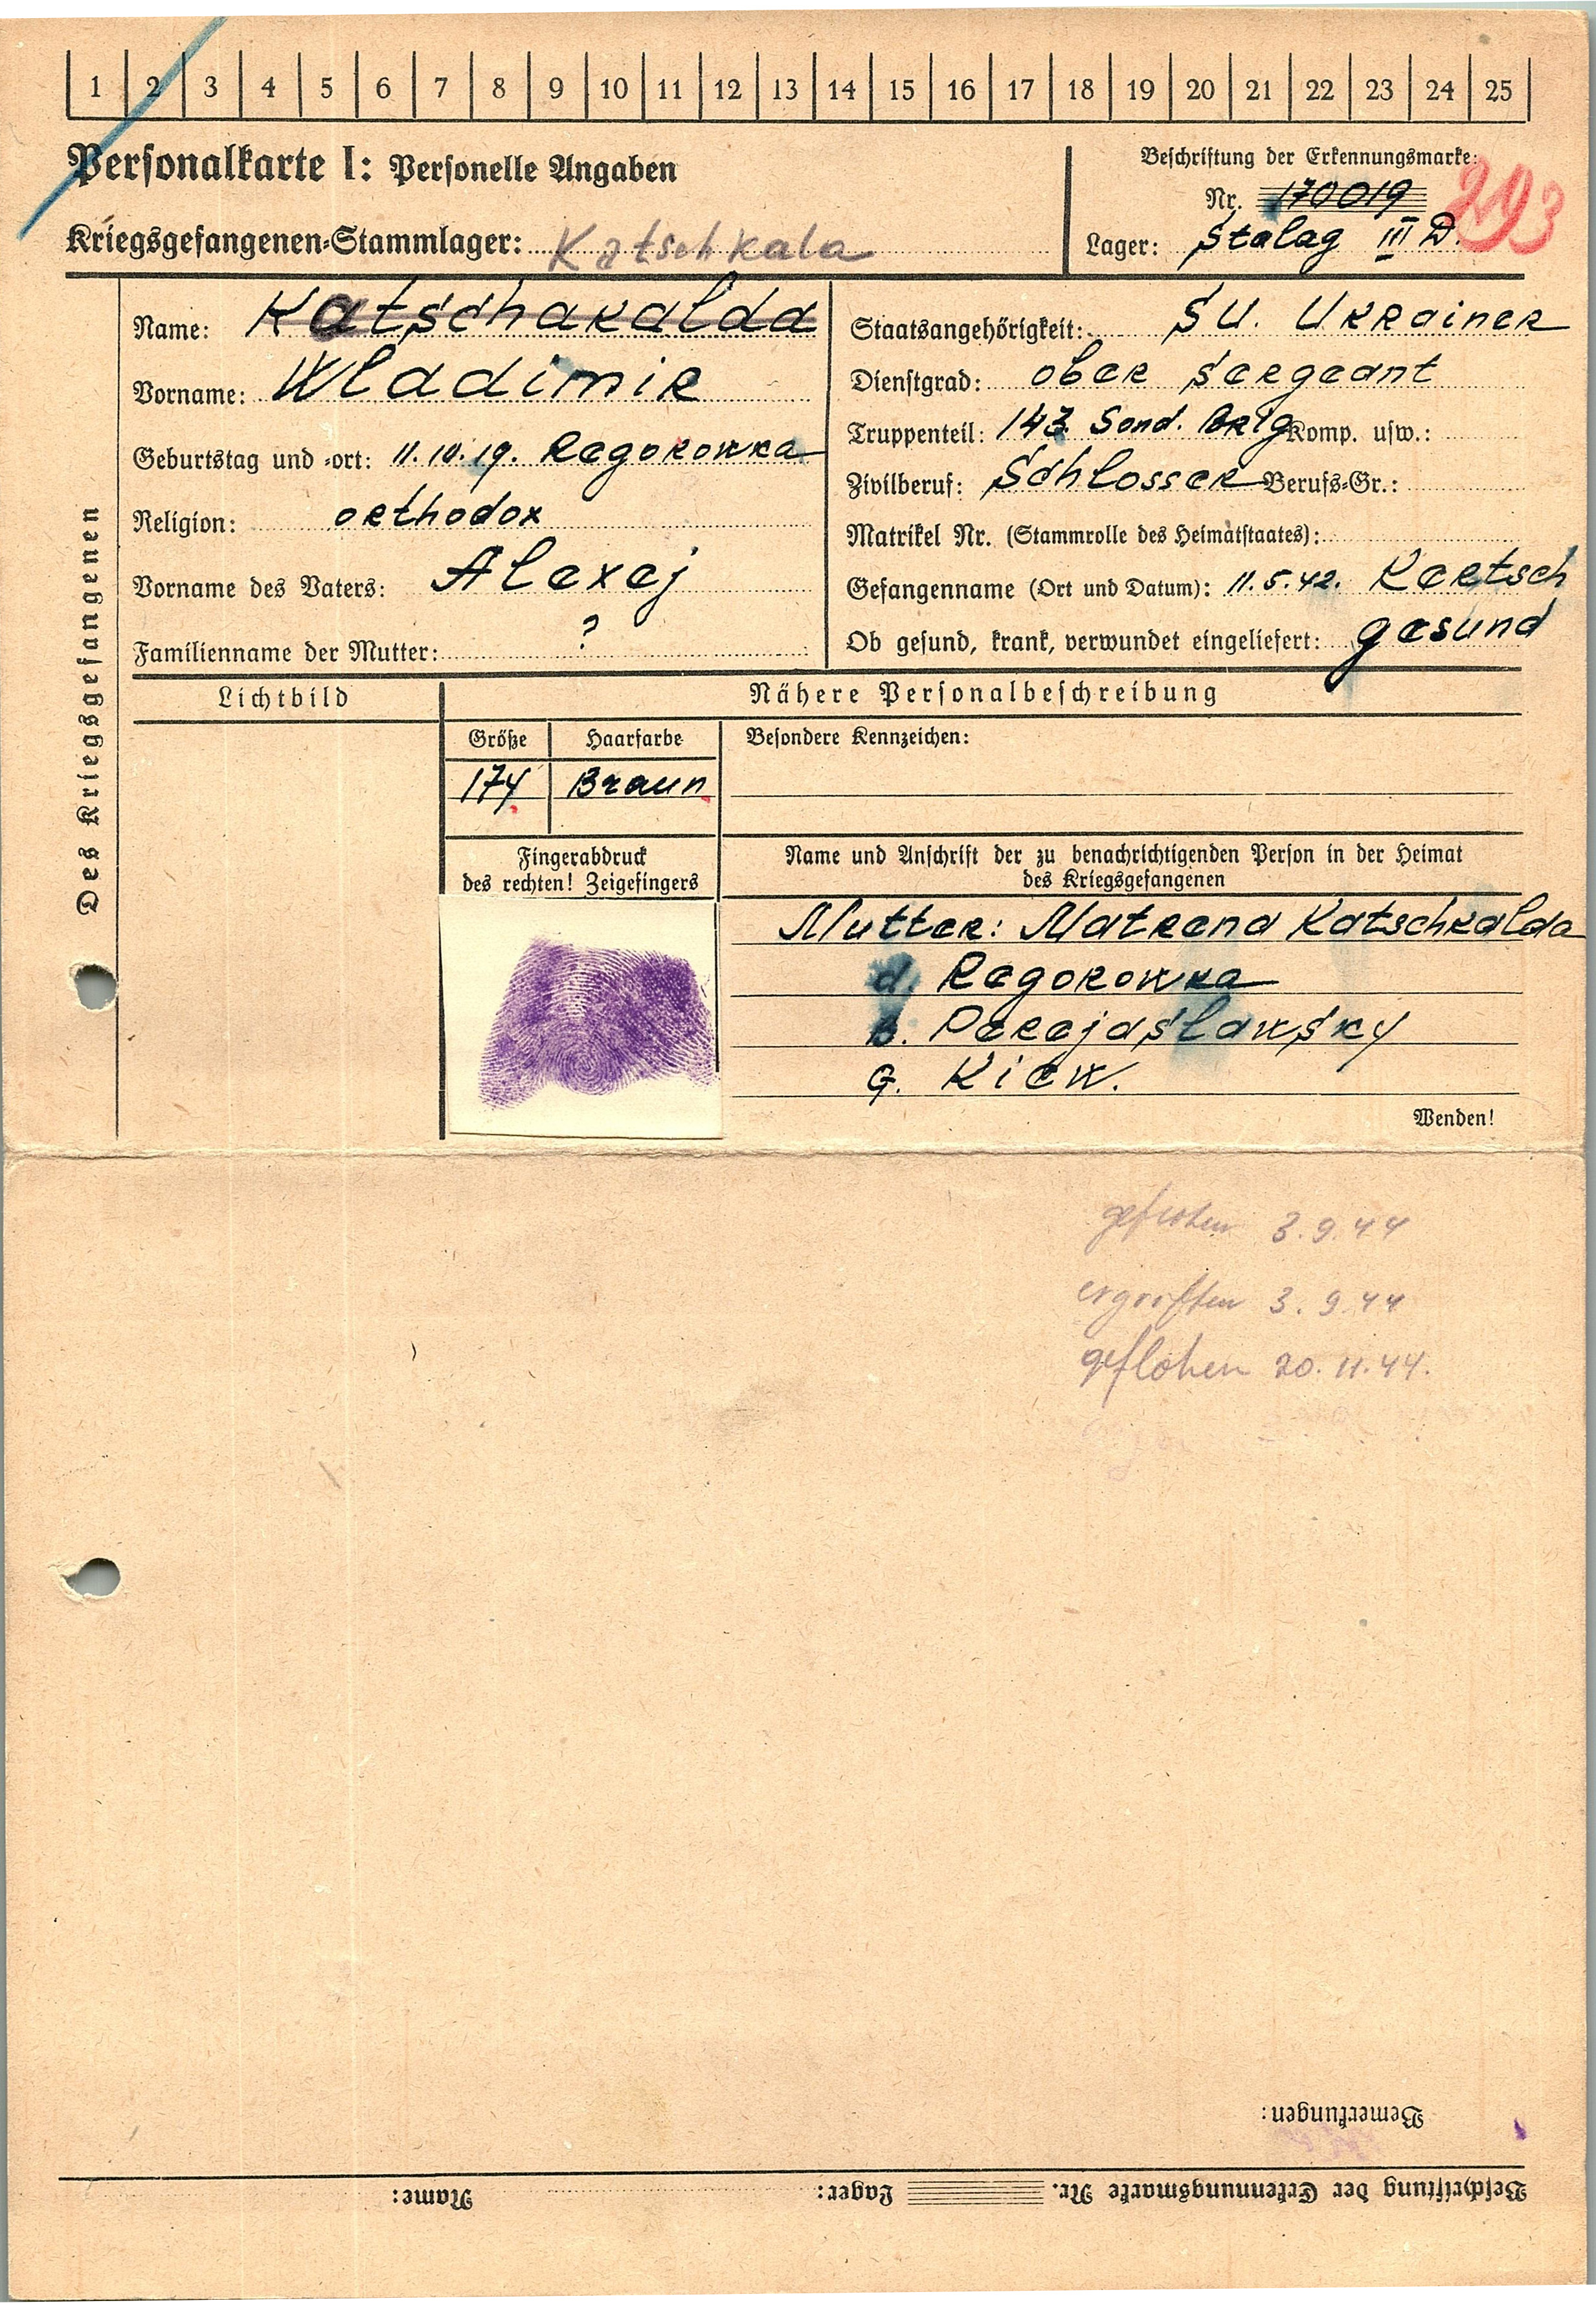 1 2 3 4 5 6 7 8 9 10 11 12 13 14 15 16 17 18 19 20 21 22 23 24 25
Personalkarte I: Personelle Angaben
Kriegsgefangenen-Stammlager: Katschkala
Beschriftung der Erkennungsmarke:
Nr. 170019
293
Lager: Stalag III D.
Des Kriegsgefangenen
Name: Katschakalda
Vorname: Wladimir
Geburtstag und -ort: 11.10.19. Regorowka
Religion: orthodox
Vorname des Vaters: Alexej
Familienname der Mutter: ?
Staatsangehörigkeit: SU. Ukrainer
Dienstgrad: ober sergeant
Truppenteil: 143. Sond. Brig Komp. usw.:
Zivilberuf: Schlosser Berufs-Gr.:
Matrikel Nr. (Stammrolle des Heimatstaates):
Gefangenname (Ort und Datum): 11.5.42. Kertsch
Ob gesund, krank, verwundet eingeliefert: gesund
Lichtbild
Nähere Personalbeschreibung
Größe Haarfarbe Besondere Kennzeichen:
174 Braun
Fingerabdruck
des rechten! Zeigefingers
Name und Anschrift der zu benachrichtigenden Person in der Heimat
des Kriegsgefangenen
Mutter: Matrena Katschkalda
d. Regorowka
B. Perejaslawsky
G. Kiew.
Wenden!
geflohen 3.9.44
ergriffen 3.9.44
geflohen 20.11.44.
Bemerkungen:
Beschriftung der Erkennungsmarke Nr. Lager: Name: